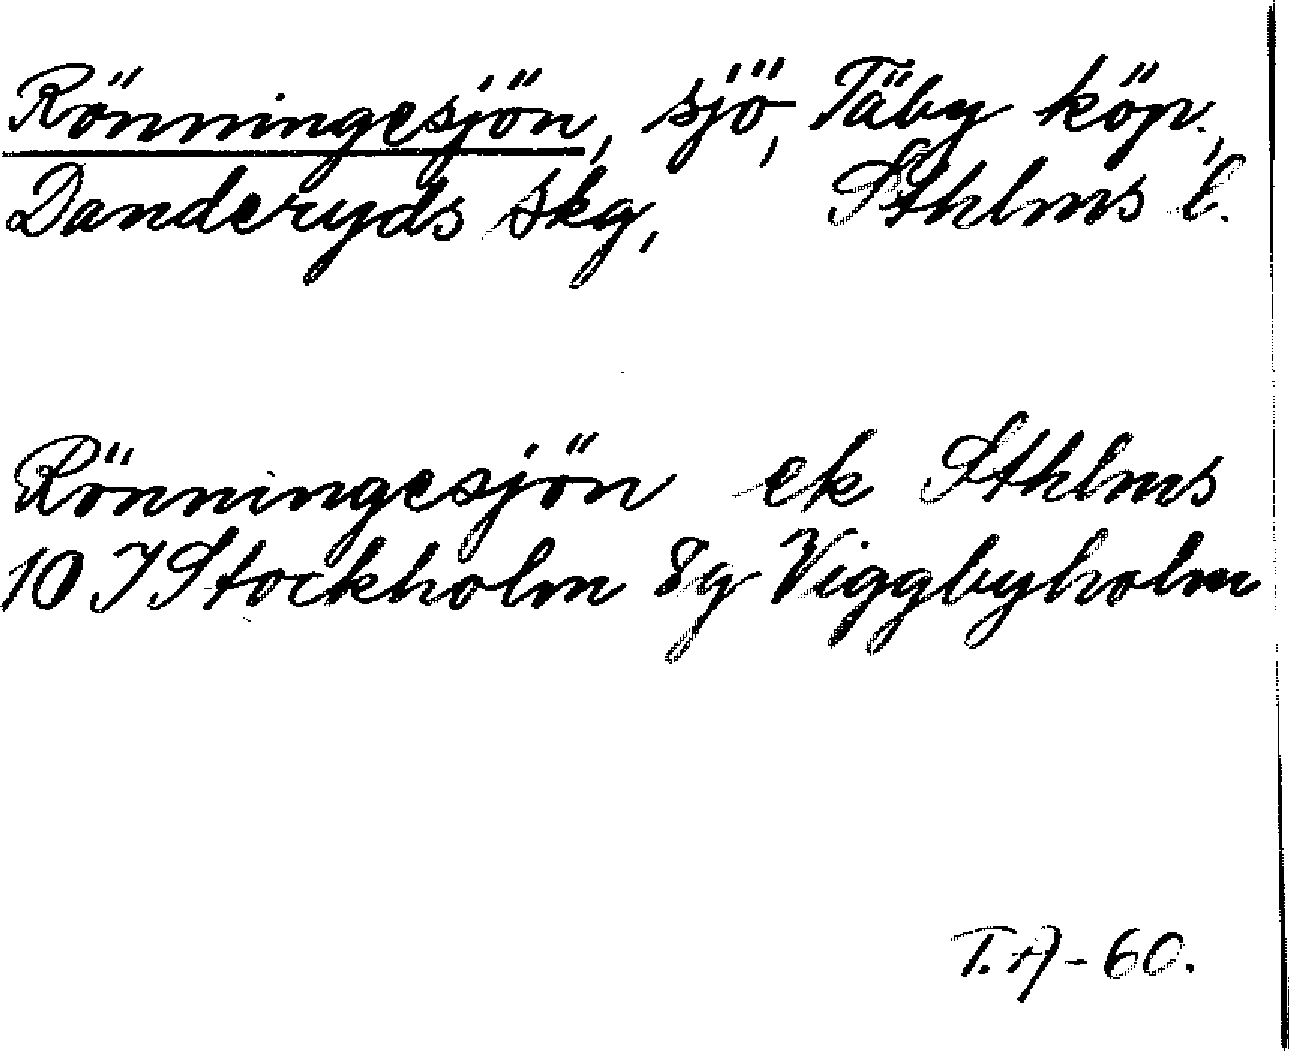 Rönningesjön, sjö, Täby köp.,
Danderyds skg, Sthlms l.
Rönningesjön ek Sthlms
10 I Stockholm 8g Viggbyholm
T.A-60.